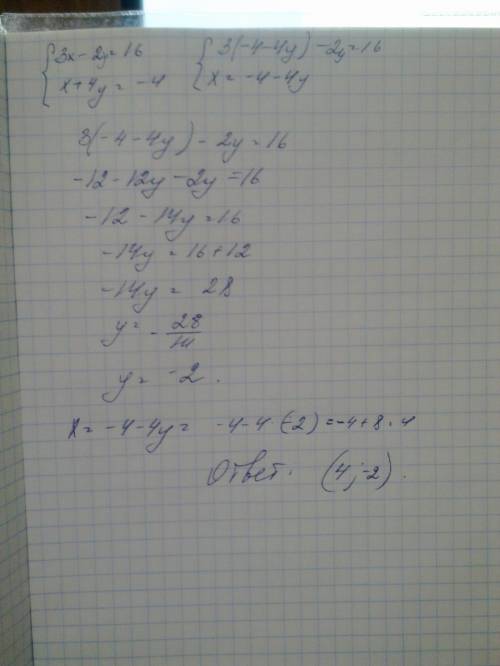 {3x-2y=16 {3(-4-4y)-2y=16
{x+4y=-4 {x=-4-4y
3(-4-4y)-2y=16
-12-12y-2y=16
-12-14y=16
-14y=16+12
-14y=28
y=-28/14
y=-2.
x=-4-4y= -4-4·(-2)=-4+8=4
Ответ: (4;-2).